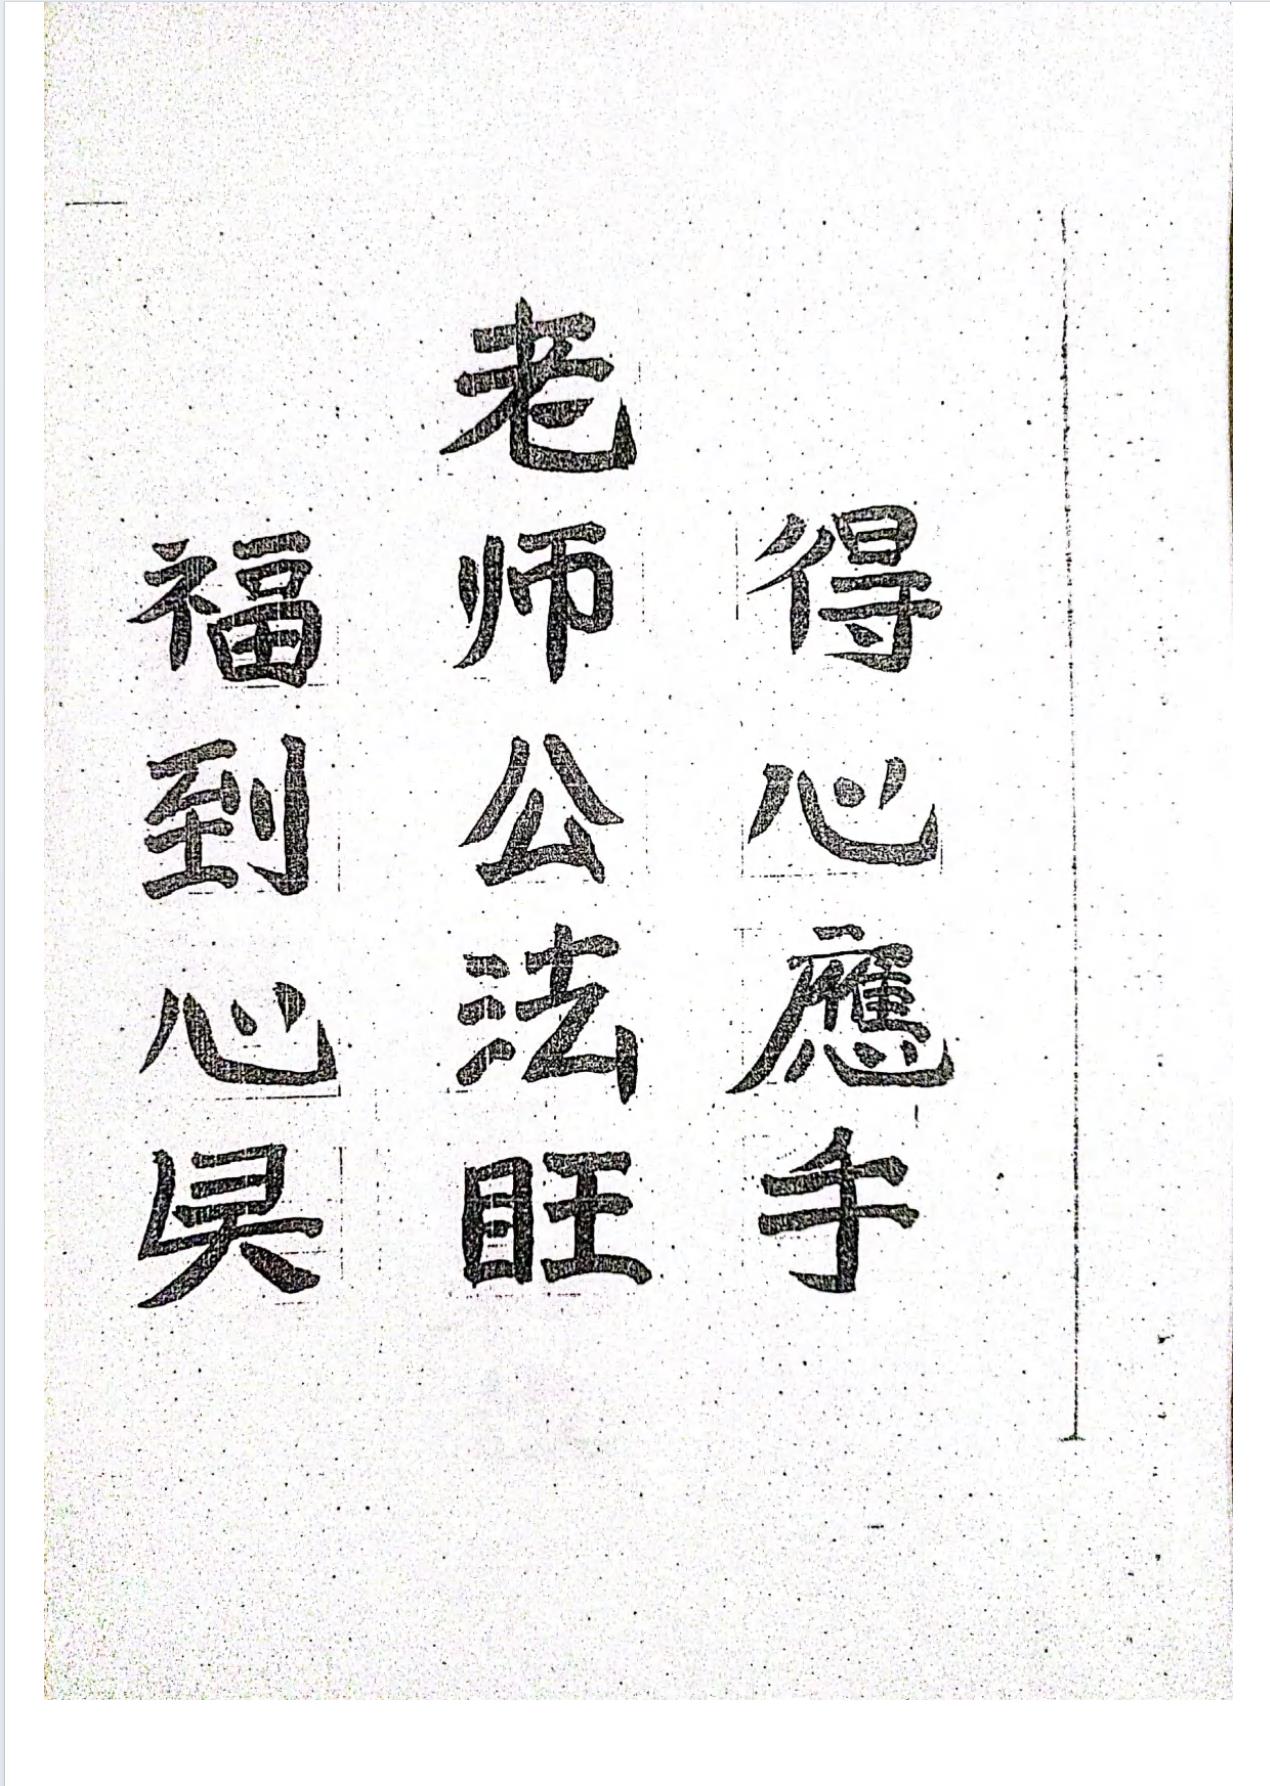 得心應手
老师公法旺
福到心